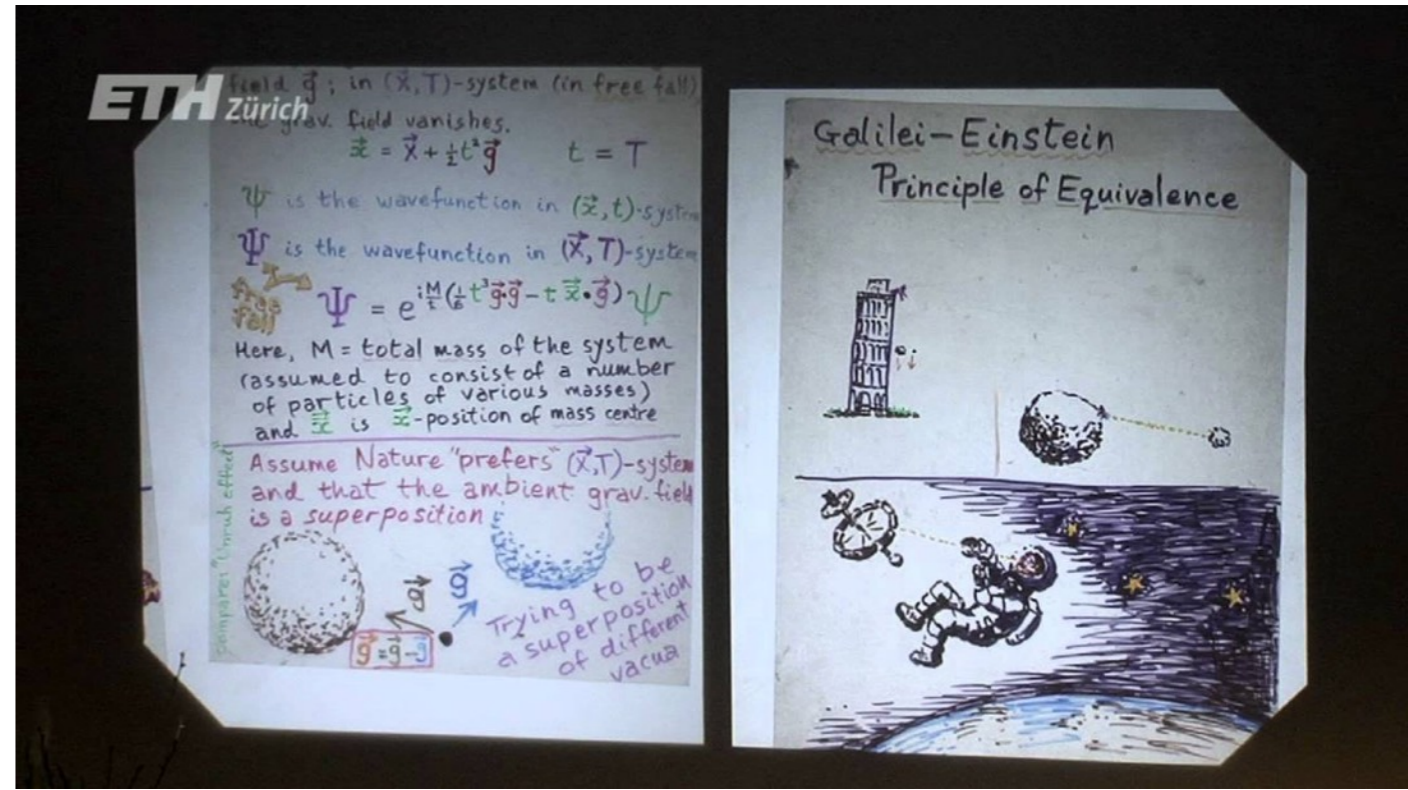 ETH Zürich
field g⃗ ; in (X⃗,T)-system (in free fall)
the grav. field vanishes.
x⃗ = X⃗ + ½t²g⃗ t = T
ψ is the wavefunction in (x⃗,t)-system
Ψ is the wavefunction in (X⃗,T)-system
free
fall
Ψ = e^{i M/ħ (1/6 t³ g⃗•g⃗ − t x⃗•g⃗)} ψ
Here, M = total mass of the system
(assumed to consist of a number
of particles of various masses)
and x̄⃗ is x⃗-position of mass centre
Assume Nature "prefers" (X⃗,T)-system
and that the ambient grav. field
is a superposition
compare: "Unruh effect"
g⃗
g⃗
g⃗ = g⃗ − g⃗
Trying to be
a superposition
of different
vacua
Galilei-Einstein
Principle of Equivalence